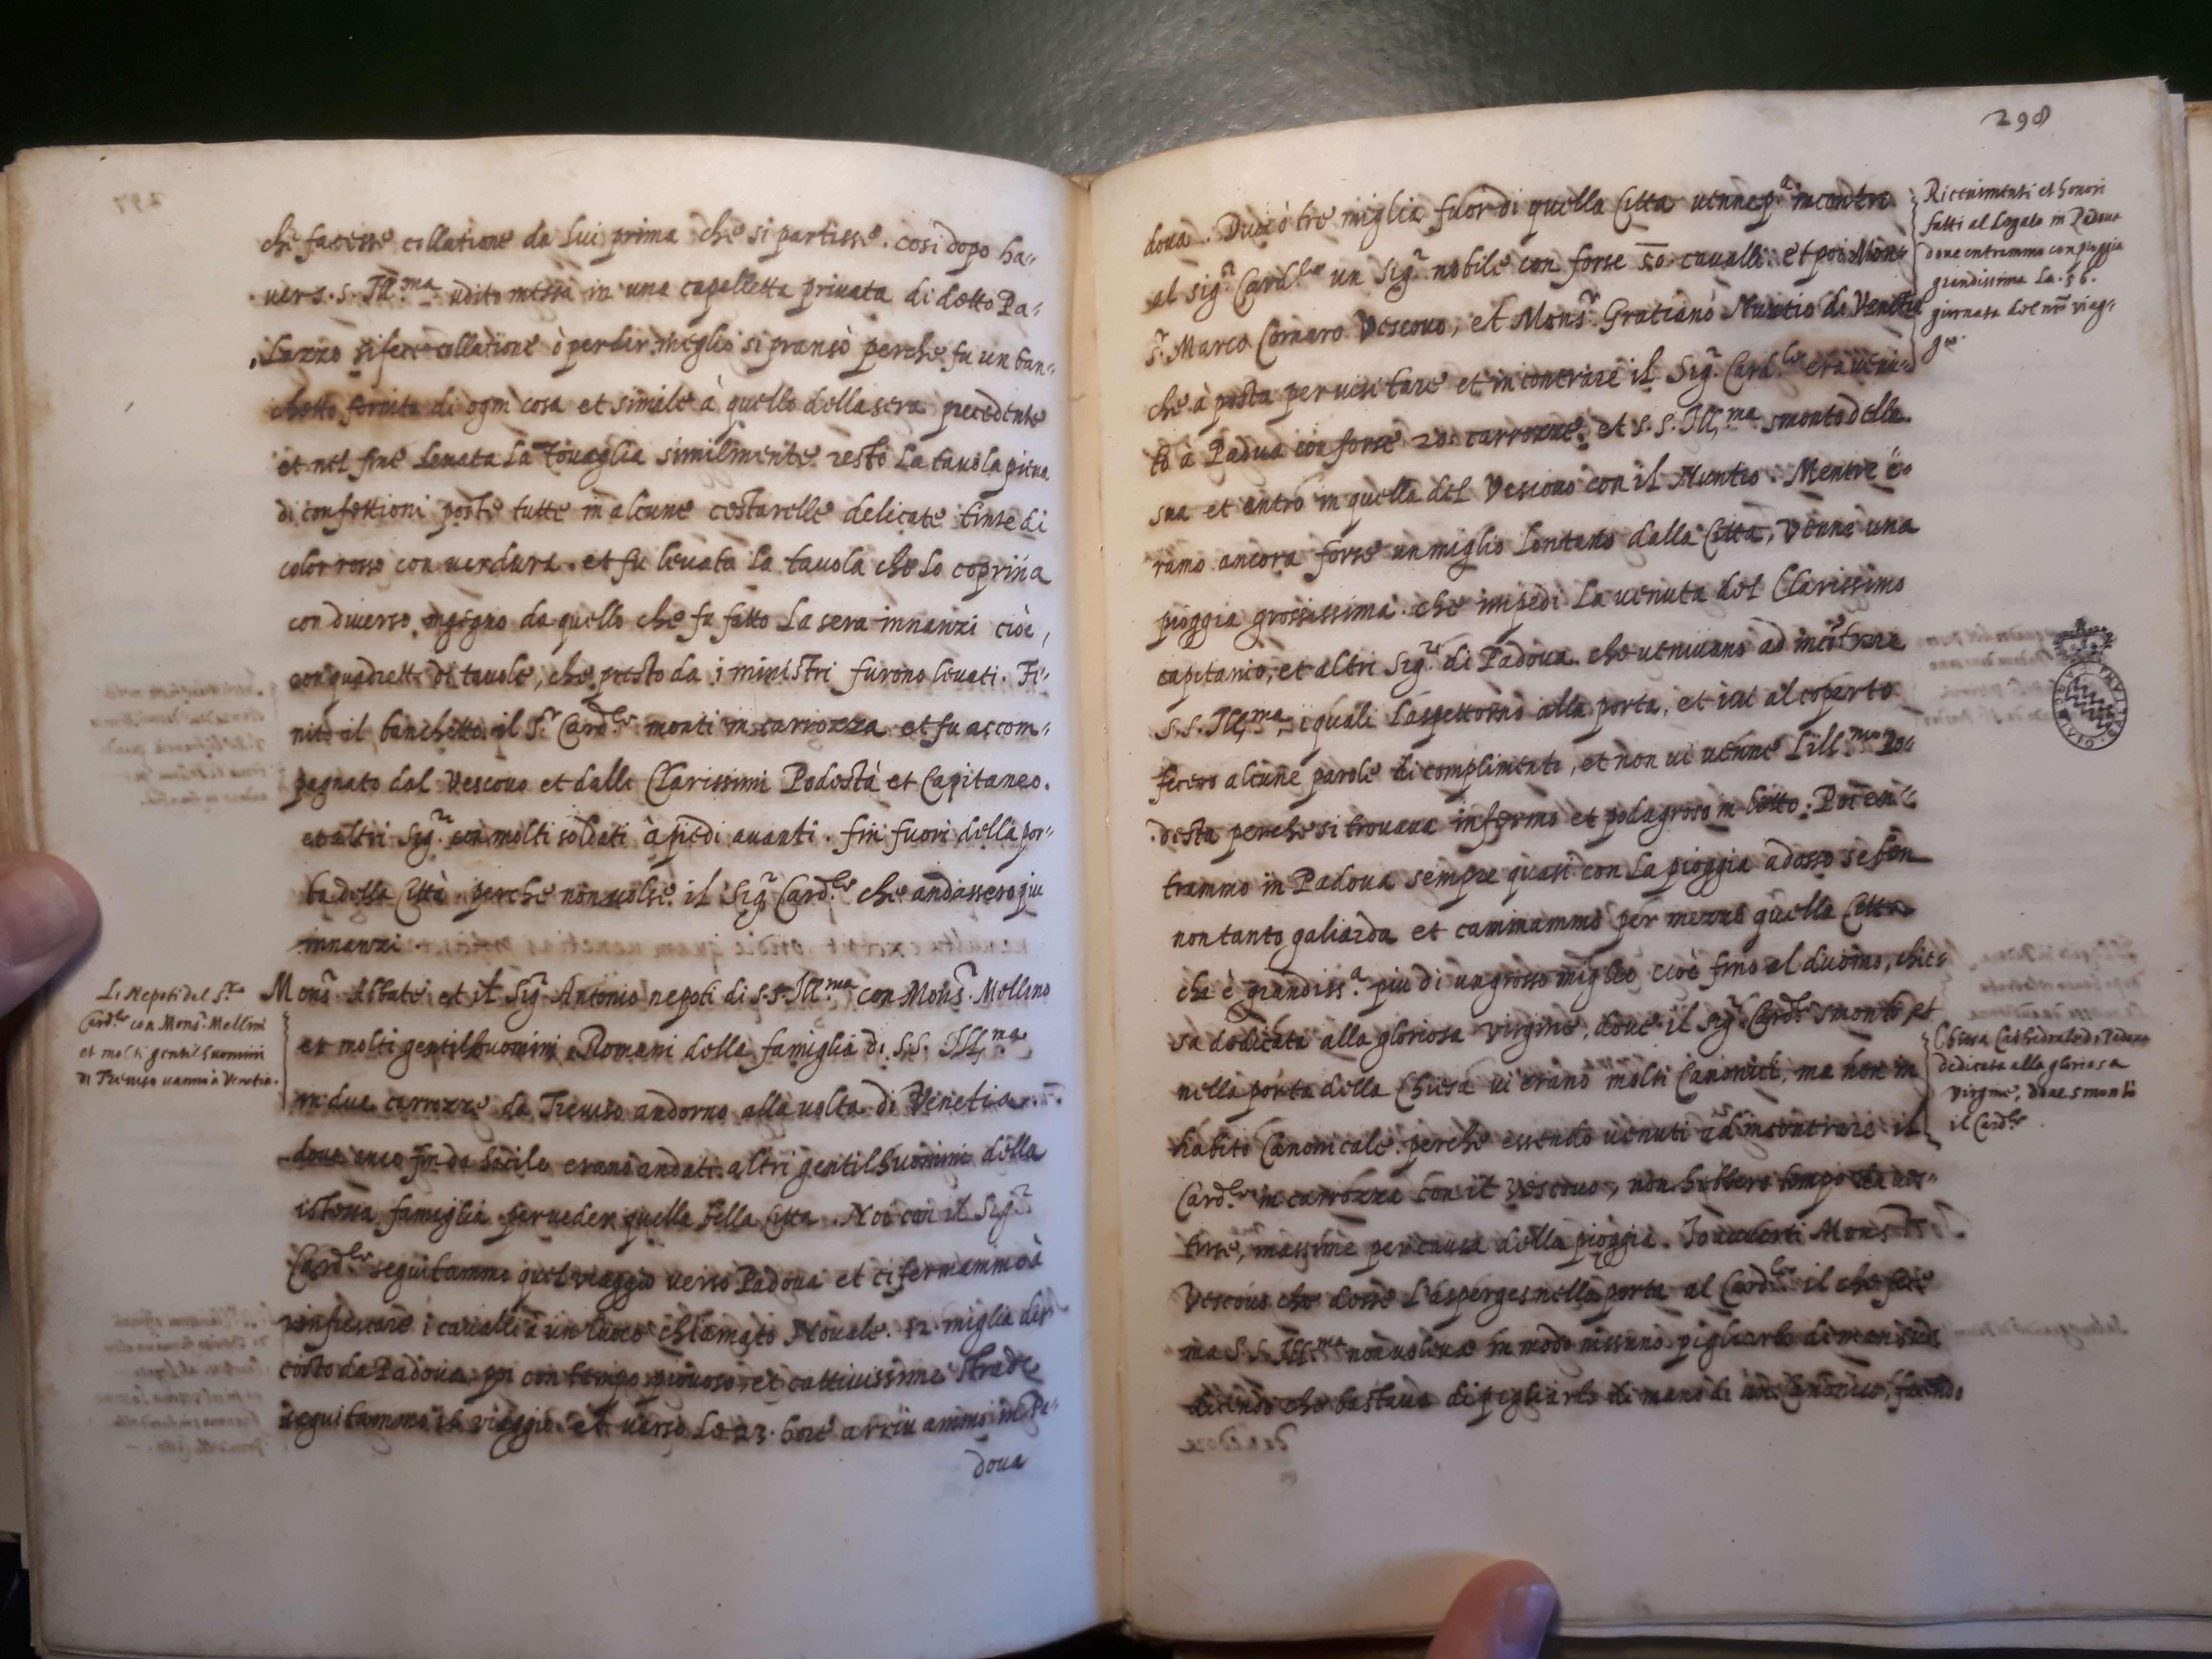 che facesse collatione da lui prima che si partisse. così dopo ha=
ver s. s. Ill.ma udito messa in una capelletta privata di detto Pa=
lazzo si fece collatione ò per dir meglio si pransò perche fu un ban=
chetto fornito di ogni cosa et simile à quello della sera precedente
et nel fine levata la tovaglia similmente restò la tavola piena
di confettioni poste tutte in alcune cestarelle delicate tinte di
color rosso con verdura. et fu levata la tavola che lo copriva
con diverso ingegno da quello che fu fatto la sera innanzi cioè,
con quadretti di tavole, che presto da i ministri furono levati. Fi=
nito il banchetto il S.r Card.le montò in carrozza et fu accom=
pagnato dal Vescovo et dalli Clarissimi Podestà et Capitaneo.
et altri Sig.ri con molti soldati à piedi avanti. fin fuori della por=
ta della Città perche non volse il Sig.r Card.le che andassero più
innanzi.
Li Nepoti del S.r
Card.le con Mons.r Mellini
et molti gentilhuomini
di Treviso vanno à Venetia.
Mons.r Abbate et il Sig.r Antonio nepoti di s. s. Ill.ma con Mons.r Mellino
et molti gentilhuomini Romani della famiglia di S.S. Ill.ma
in due carrozze da Treviso andorno alla volta di Venetia
dove anco fin da Sacile erano andati altri gentilhuomini della
istessa famiglia per veder quella bella Città. Noi con il Sig.r
Card.le seguitammo quel viaggio verso Padova et ci fermammo à
rinfrescare i cavalli à un luoco chiamato Novale. 12 miglia dis
costo da Padova, poi con tempo piovoso et cattivissime strade
seguitammo il viaggio. et verso le 23. hore arrivammo in Pa=
dova
298
dova. Due ò tre miglia fuor di quella Città venne p.a incontro
al sig.r Card.le un Sig.r nobile con forse 50. cavalli. et poi Mon=
s.r Marco Cornaro Vescovo, et Mons.r Gratiano Nuntio di Venetia
che à posta per visitare et incontrare il Sig.r Card.le era venu=
to à Padua con forse 20. carrozze. et S. S. Ill.ma smontò della
sua et entrò in quella del Vescovo con il Nuntio. Mentre e=
ramo ancora forse un miglio lontano dalla Città, venne una
pioggia grossissima. che impedì la venuta del Clarissimo
capitanio, et altri Sig.ri di Padova. che venivano ad incontrare
S. S. Ill.ma, i quali l'aspettorno alla porta, et ivi al coperto
fecero alcune parole di complimenti, et non vi venne l'ill.mo Po=
destà perche si trovava infermo et podagroso in letto. Poi en=
trammo in Padova sempre quasi con la pioggia adosso se ben
non tanto galiarda et caminammo per mezzo quella Città
che è grandiss.a più di un grosso miglio cioè fino al duomo, chie=
sa dedicata alla gloriosa virgine, dove il Sig.r Card.le smontò et
nella porta della Chiesa vi erano molti Canonici, ma non in
habito Canonicale. perche essendo venuti ad incontrare il
Card.le in carrozza con il Vescovo, non hebbero tempo da ves=
tirse, massime per causa della pioggia. Io avvertì Mons.r
Vescovo che desse l'asperges nella porta al Card.le il che fece
ma S. S. Ill.ma non voleva in modo nissuno pigliarlo di man sua
dicendo che bastava di pigliarlo di mano di un Canonico, facendo
Ricevimenti et honori
fatti al Legato in Padova
dove entrammo con pioggia
grandissima. La. 56.
giornata del nro viag=
gio.
Chiesa Cathedrale di Padova
dedicata alla gloriosa
Virgine, dove smontò
il Card.le